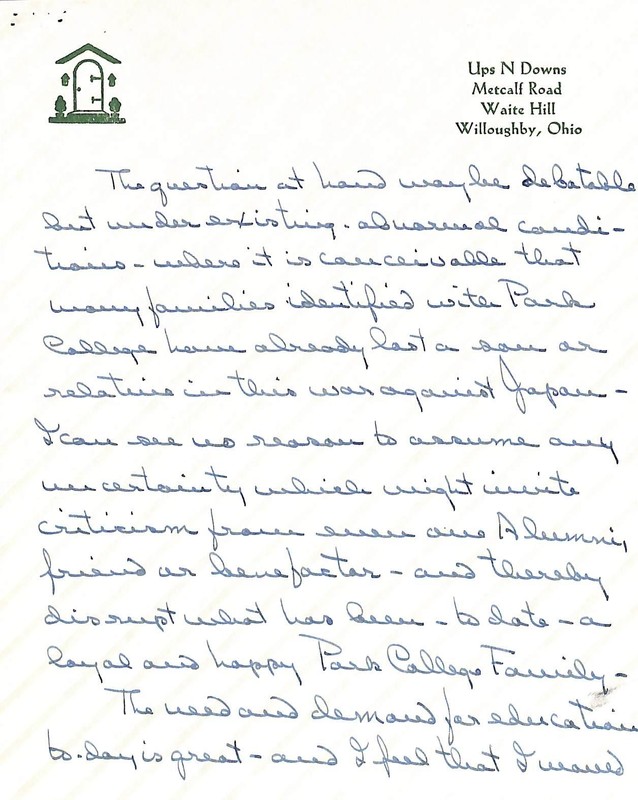 Ups N Downs
Metcalf Road
Waite Hill
Willoughby, Ohio
The question at hand may be debatable
but under existing - abnormal condi-
tions - where it is conceivable that
many families identified with Park
College have already lost a son or
relative in this war against Japan -
I can see no reason to assume any
uncertainty which might invite
criticism from even one Alumni,
friend or benefactor - and thereby
disrupt what has been - to date - a
loyal and happy Park College Family -
The need and demand for education
to-day is great - and I feel that I would